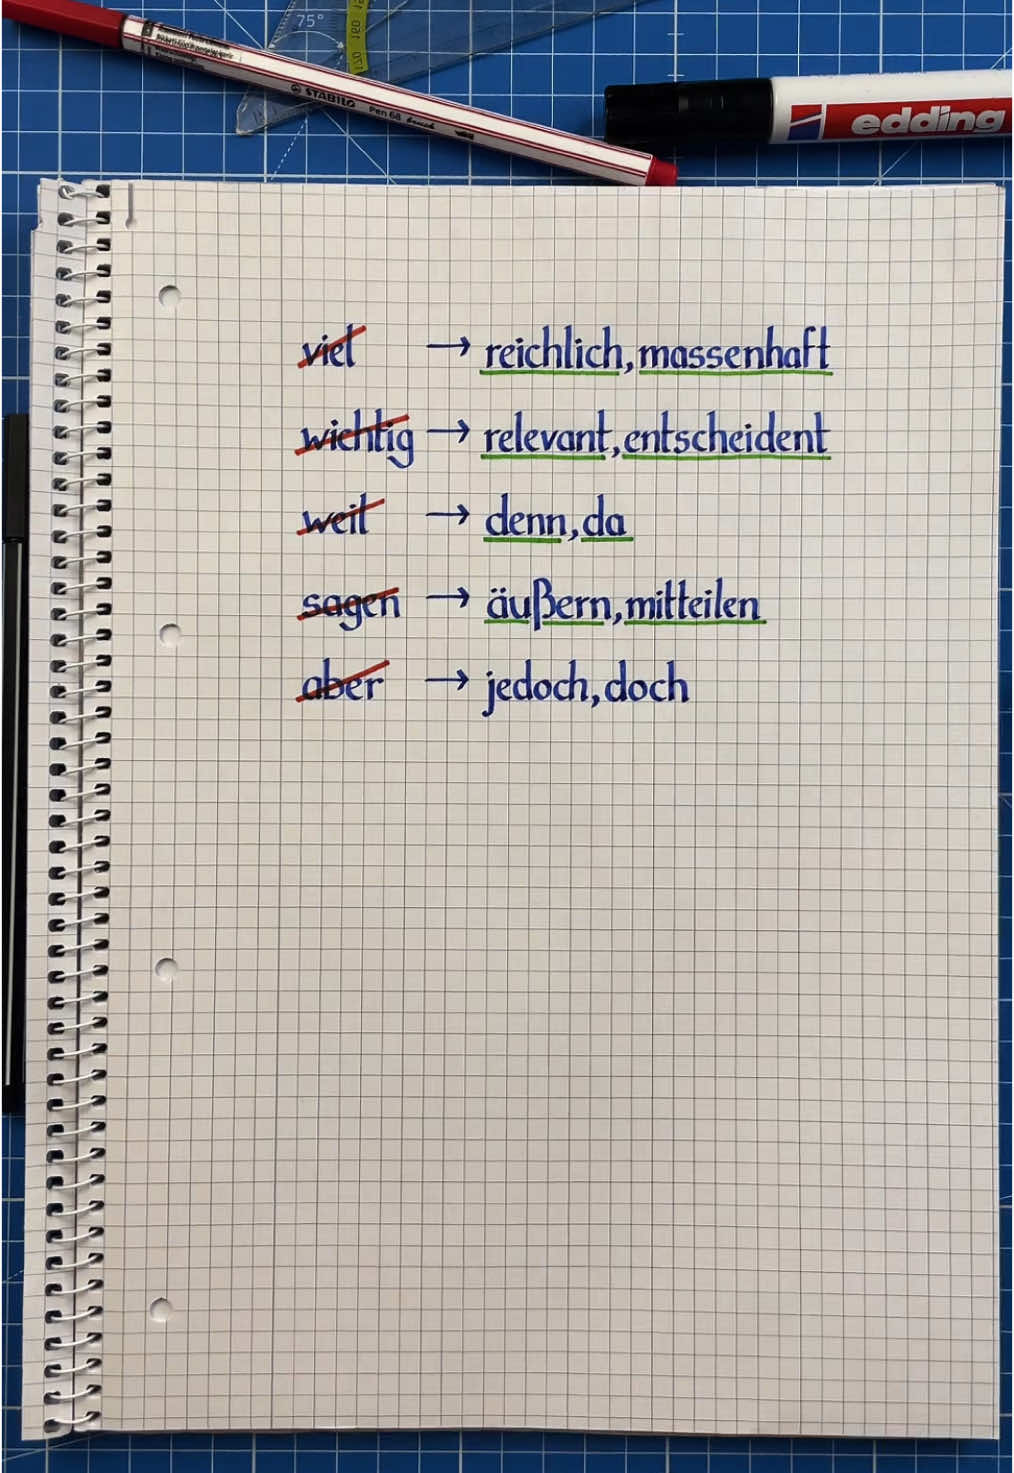 75°
STABILO Pen 68 brush
edding
viel → reichlich, massenhaft
wichtig → relevant, entscheident
weil → denn, da
sagen → äußern, mitteilen
aber → jedoch, doch